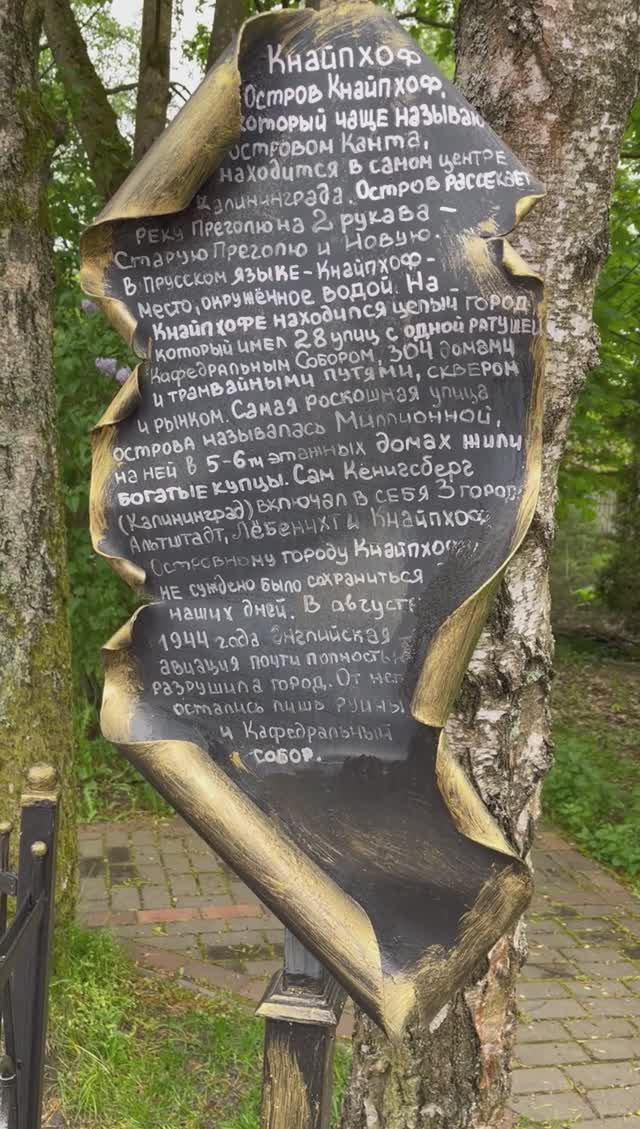 Кнайпхоф
Остров Кнайпхоф,
который чаще называю
островом Канта,
находится в самом центре
Калининграда. Остров рассекает
реку Преголю на 2 рукава –
Старую Преголю и Новую.
В прусском языке – Кнайпхоф –
место, окружённое водой. На –
Кнайпхофе находился целый город
который имел 28 улиц с одной ратушей
Кафедральным Собором, 304 домами
и трамвайными путями, сквером
и рынком. Самая роскошная улица
острова называлась Миллионной,
на ней в 5-6ти этажных домах жили
богатые купцы. Сам Кёнигсберг
(Калининград) включал в себя 3 город
Альтштадт, Лёбенихт и Кнайпхоф
Островному городу Кнайпхоф
не суждено было сохраниться
наших дней. В август
1944 года английская
авиация почти полность
разрушила город. От не
остались лишь руины
и Кафедральный
собор.